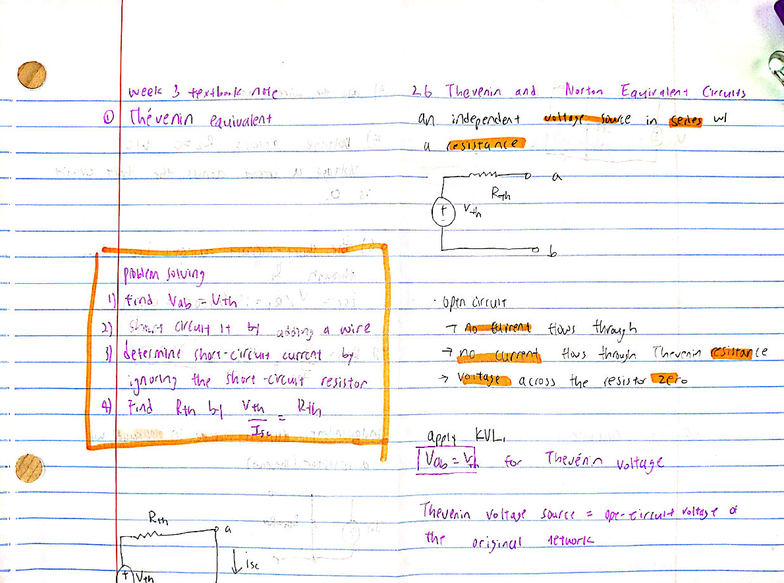 week 3 textbook note
① Thévenin equivalent
problem solving
1) find Vab = Vth
2) short circuit it by adding a wire
3) determine short-circuit current by
ignoring the short-circuit resistor
4) Find Rth by Vth/Isc = Rth
Rth
a
Vth
isc
2.6 Thevenin and Norton Equivalent Circuits
an independent voltage source in series w/
a resistance
Rth
a
Vth
b
· open circuit
→ no current flows through
→ no current flows through Thevenin resistance
→ Voltage across the resistor zero
apply KVL,
Vab = Vth for Thevénin voltage
Thevenin voltage source = ope-circuit voltage of
the original network